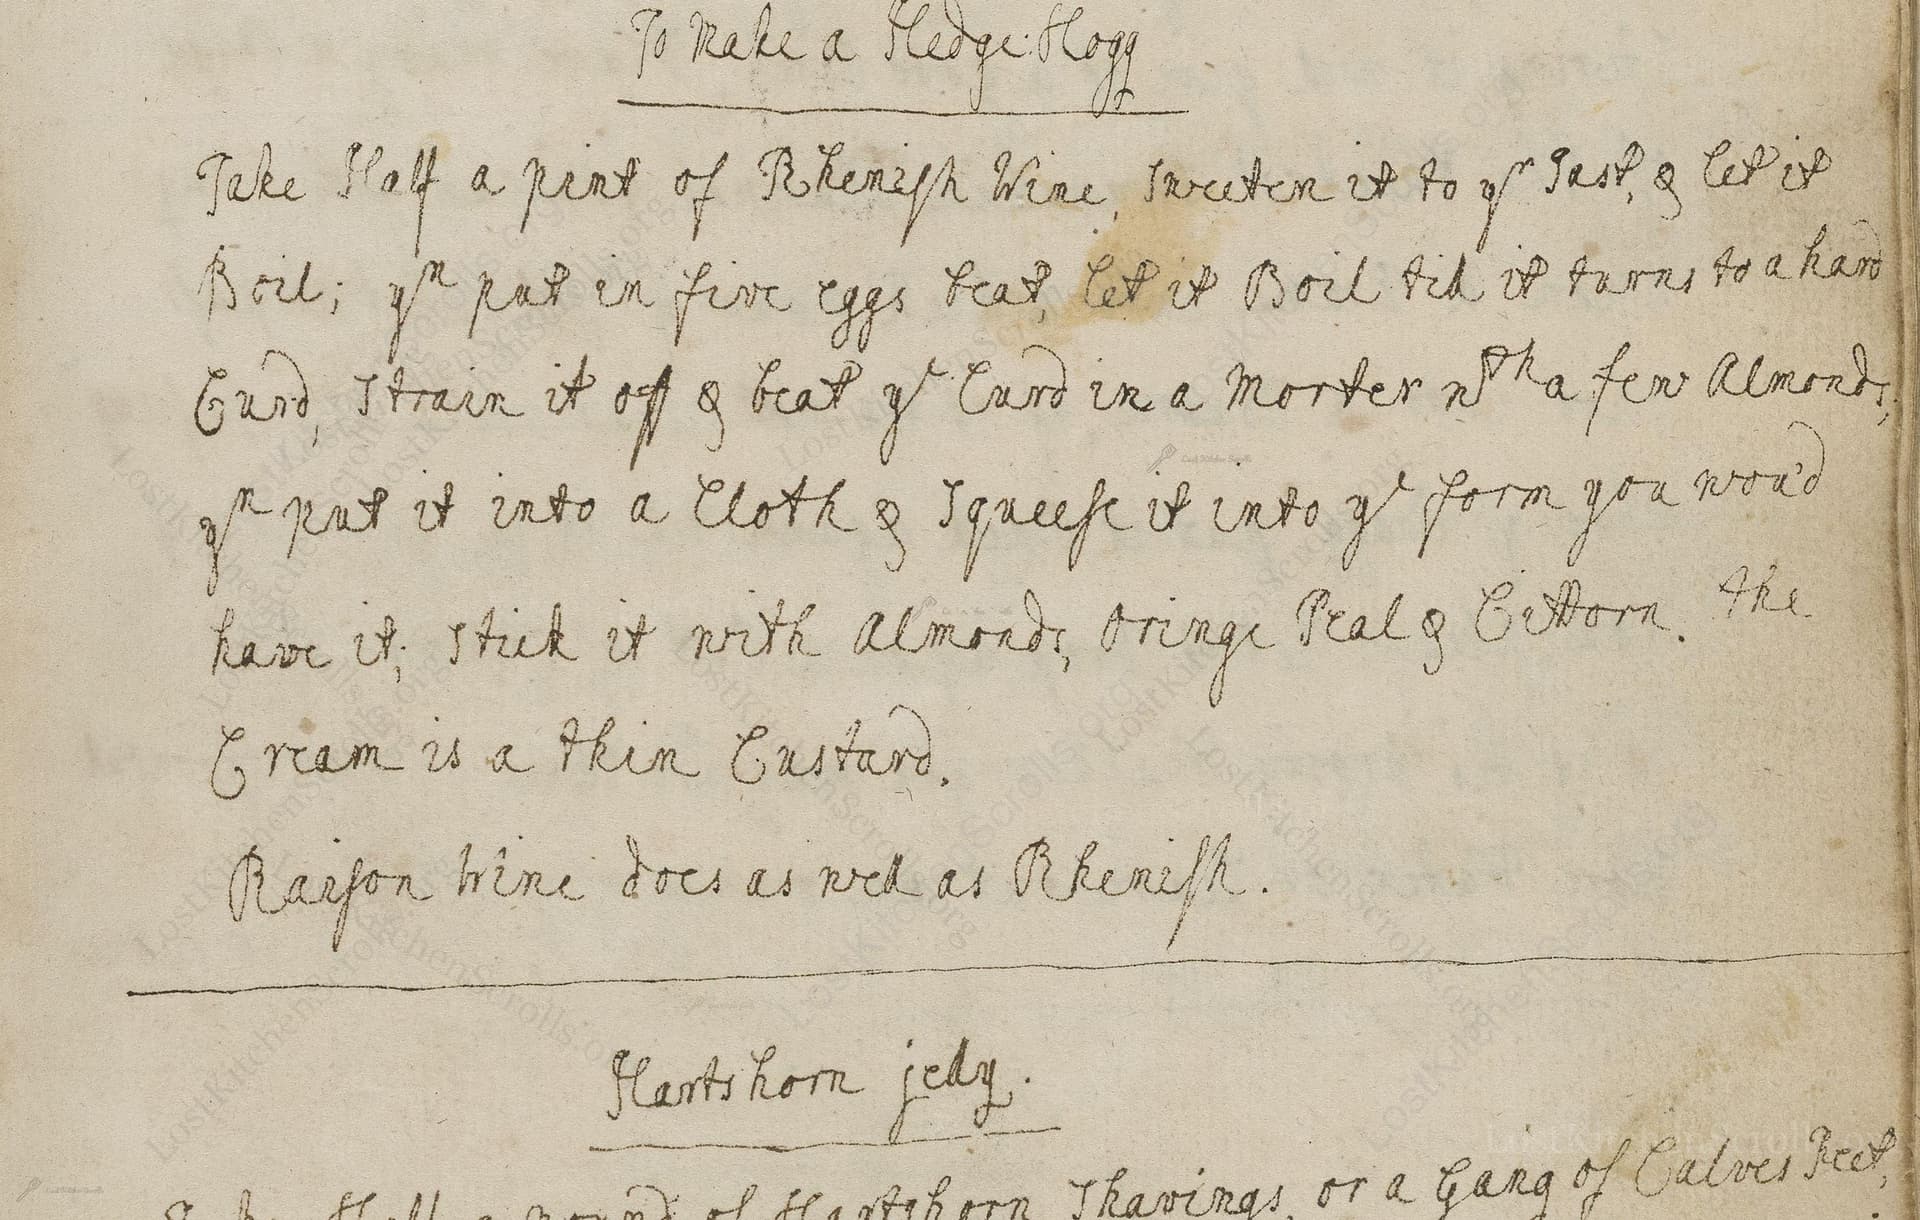 To Make a Hedge:Hogg
Take Half a pint of Rhenish Wine, Sweeten it to yr Tast, & let it
Boil; yn put in five eggs beat, let it Boil till it turns to a hard
Curd, Strain it off & beat ye Curd in a Morter wth a few Almonds,
yn put it into a Cloth & Squeese it into ye form you wou'd
have it; Stick it with Almonds, Oringe Peal & Cittorn. The
Cream is a thin Custard.
Raison Wine does as well as Rhenish.
Hartshorn jelly.
Take Half a pound of Hartshorn Shavings, or a Gang of Calves Feet,